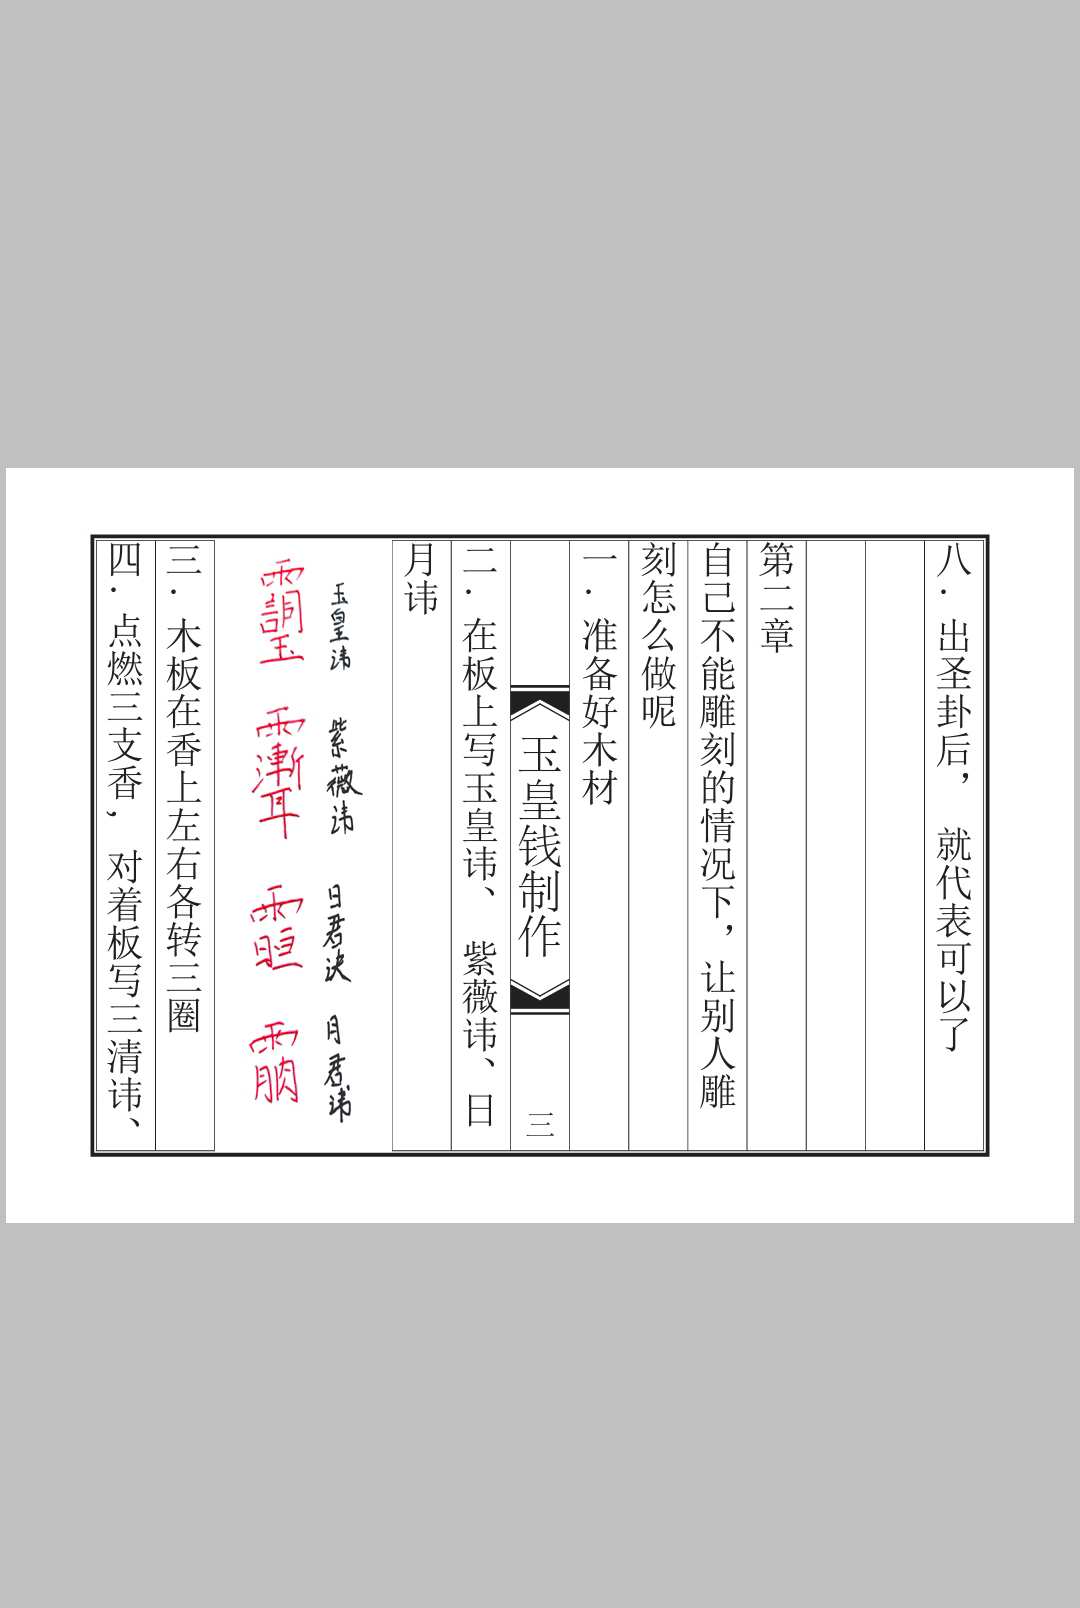 八．出圣卦后，就代表可以了
第二章
自己不能雕刻的情况下，让别人雕
刻怎么做呢
一．准备好木材
玉皇钱制作
三
二．在板上写玉皇讳、紫薇讳、日
月讳
玉皇讳
紫薇讳
日君决
月君讳
三．木板在香上左右各转三圈
四．点燃三支香，对着板写三清讳、